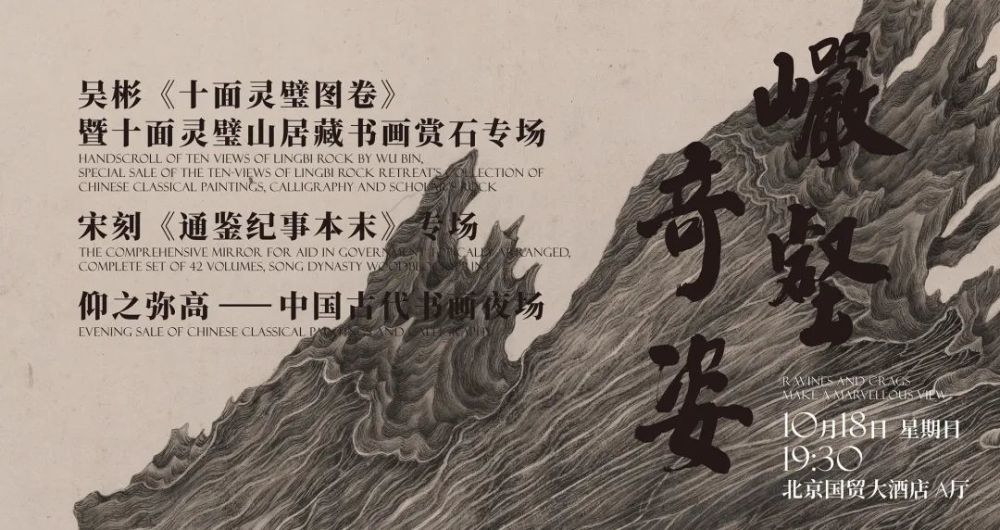 吴彬《十面灵璧图卷》
暨十面灵璧山居藏书画赏石专场
HANDSCROLL OF TEN VIEWS OF LINGBI ROCK BY WU BIN,
SPECIAL SALE OF THE TEN-VIEWS OF LINGBI ROCK RETREAT'S COLLECTION OF
CHINESE CLASSICAL PAINTINGS, CALLIGRAPHY AND SCHOLAR'S ROCK
宋刻《通鉴纪事本末》专场
THE COMPREHENSIVE MIRROR FOR AID IN GOVERNMENT TOPICALLY ARRANGED,
COMPLETE SET OF 42 VOLUMES, SONG DYNASTY WOODBLOCK PRINT
仰之弥高——中国古代书画夜场
EVENING SALE OF CHINESE CLASSICAL PAINTINGS AND CALLIGRAPHY
巖壑
奇姿
RAVINES AND CRAGS
MAKE A MARVELLOUS VIEW
10月18日 星期日
19:30
北京国贸大酒店 A厅